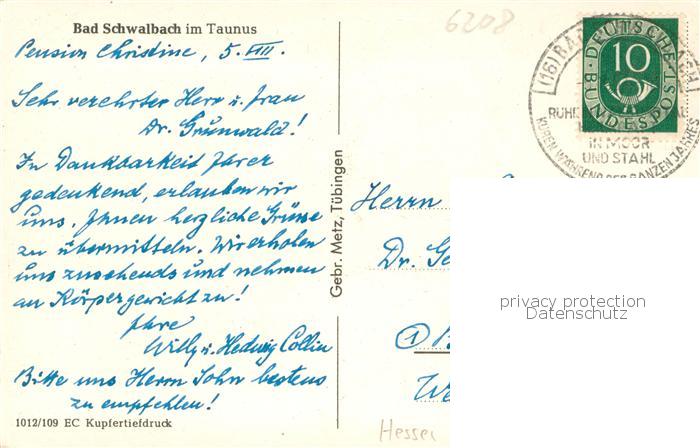 Bad Schwalbach im Taunus
Pension Christine, 5. VIII.
Sehr verehrter Herr u. Frau
Dr. Grünwald!
In Dankbarkeit Ihrer
gedenkend, erlauben wir
uns, Ihnen herzliche Grüsse
zu übermitteln. Wir erholen
uns zusehends und nehmen
an Körpergewicht zu!
Ihre
Willy u. Hedwig Collin
Bitte uns Herrn Sohn bestens
zu empfehlen!
1012/109 EC Kupfertiefdruck
Gebr. Metz, Tübingen
6208
DEUTSCHE BUNDESPOST
10
(16) BAD
RUHE
IN MOOR
UND STAHL
KUREN WÄHREND DES GANZEN JAHRES
Herrn
Dr. Ge
privacy protection
Datenschutz
Hessen